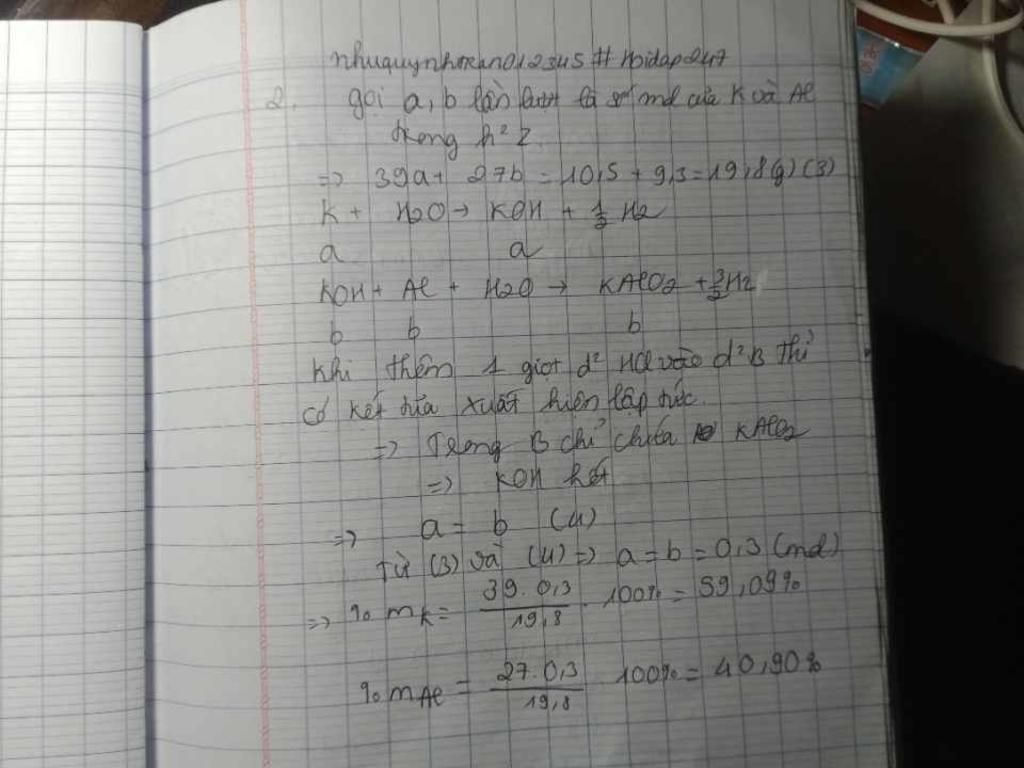 nhuquynhxxan012345 # Hoidap247
2. gọi a, b lần lượt là số mol của K và Al
trong h² Z.
=> 39a + 27b = 10,5 + 9,3 = 19,8(g) (3)
K + H2O → KOH + 1/2 H2
a a
KOH + Al + H2O → KAlO2 + 3/2 H2
b b b
Khi thêm 1 giọt d² HCl vào d² B thì
có kết tủa xuất hiện lập tức.
=> Trong B chỉ chứa KAlO2
=> KOH hết
=> a = b (4)
từ (3) và (4) => a = b = 0,3 (mol)
=> % mK = 39. 0,3 / 19,8 . 100% = 59,09%
% mAl = 27. 0,3 / 19,8 100% = 40,90%